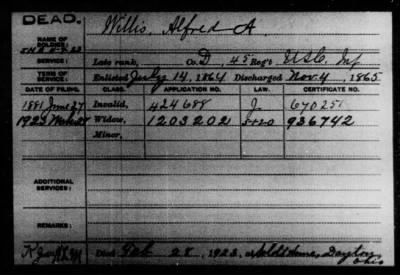 DEAD.
NAME OF SOLDIER: Willis, Alfred A.
SERVICE: Late rank, Co. D, 45 Reg't U.S.C. Inf
TERM OF SERVICE: Enlisted July 14, 1864 Discharged Nov. 4, 1865
DATE OF FILING. CLASS. APPLICATION NO. LAW. CERTIFICATE NO.
1881 June 27 Invalid, 424688 J. 670251
1923 Widow, 1203202 936742
Minor,
ADDITIONAL SERVICES:
REMARKS:
Died Feb 28, 1923, at Sold. Home, Dayton,
Ohio